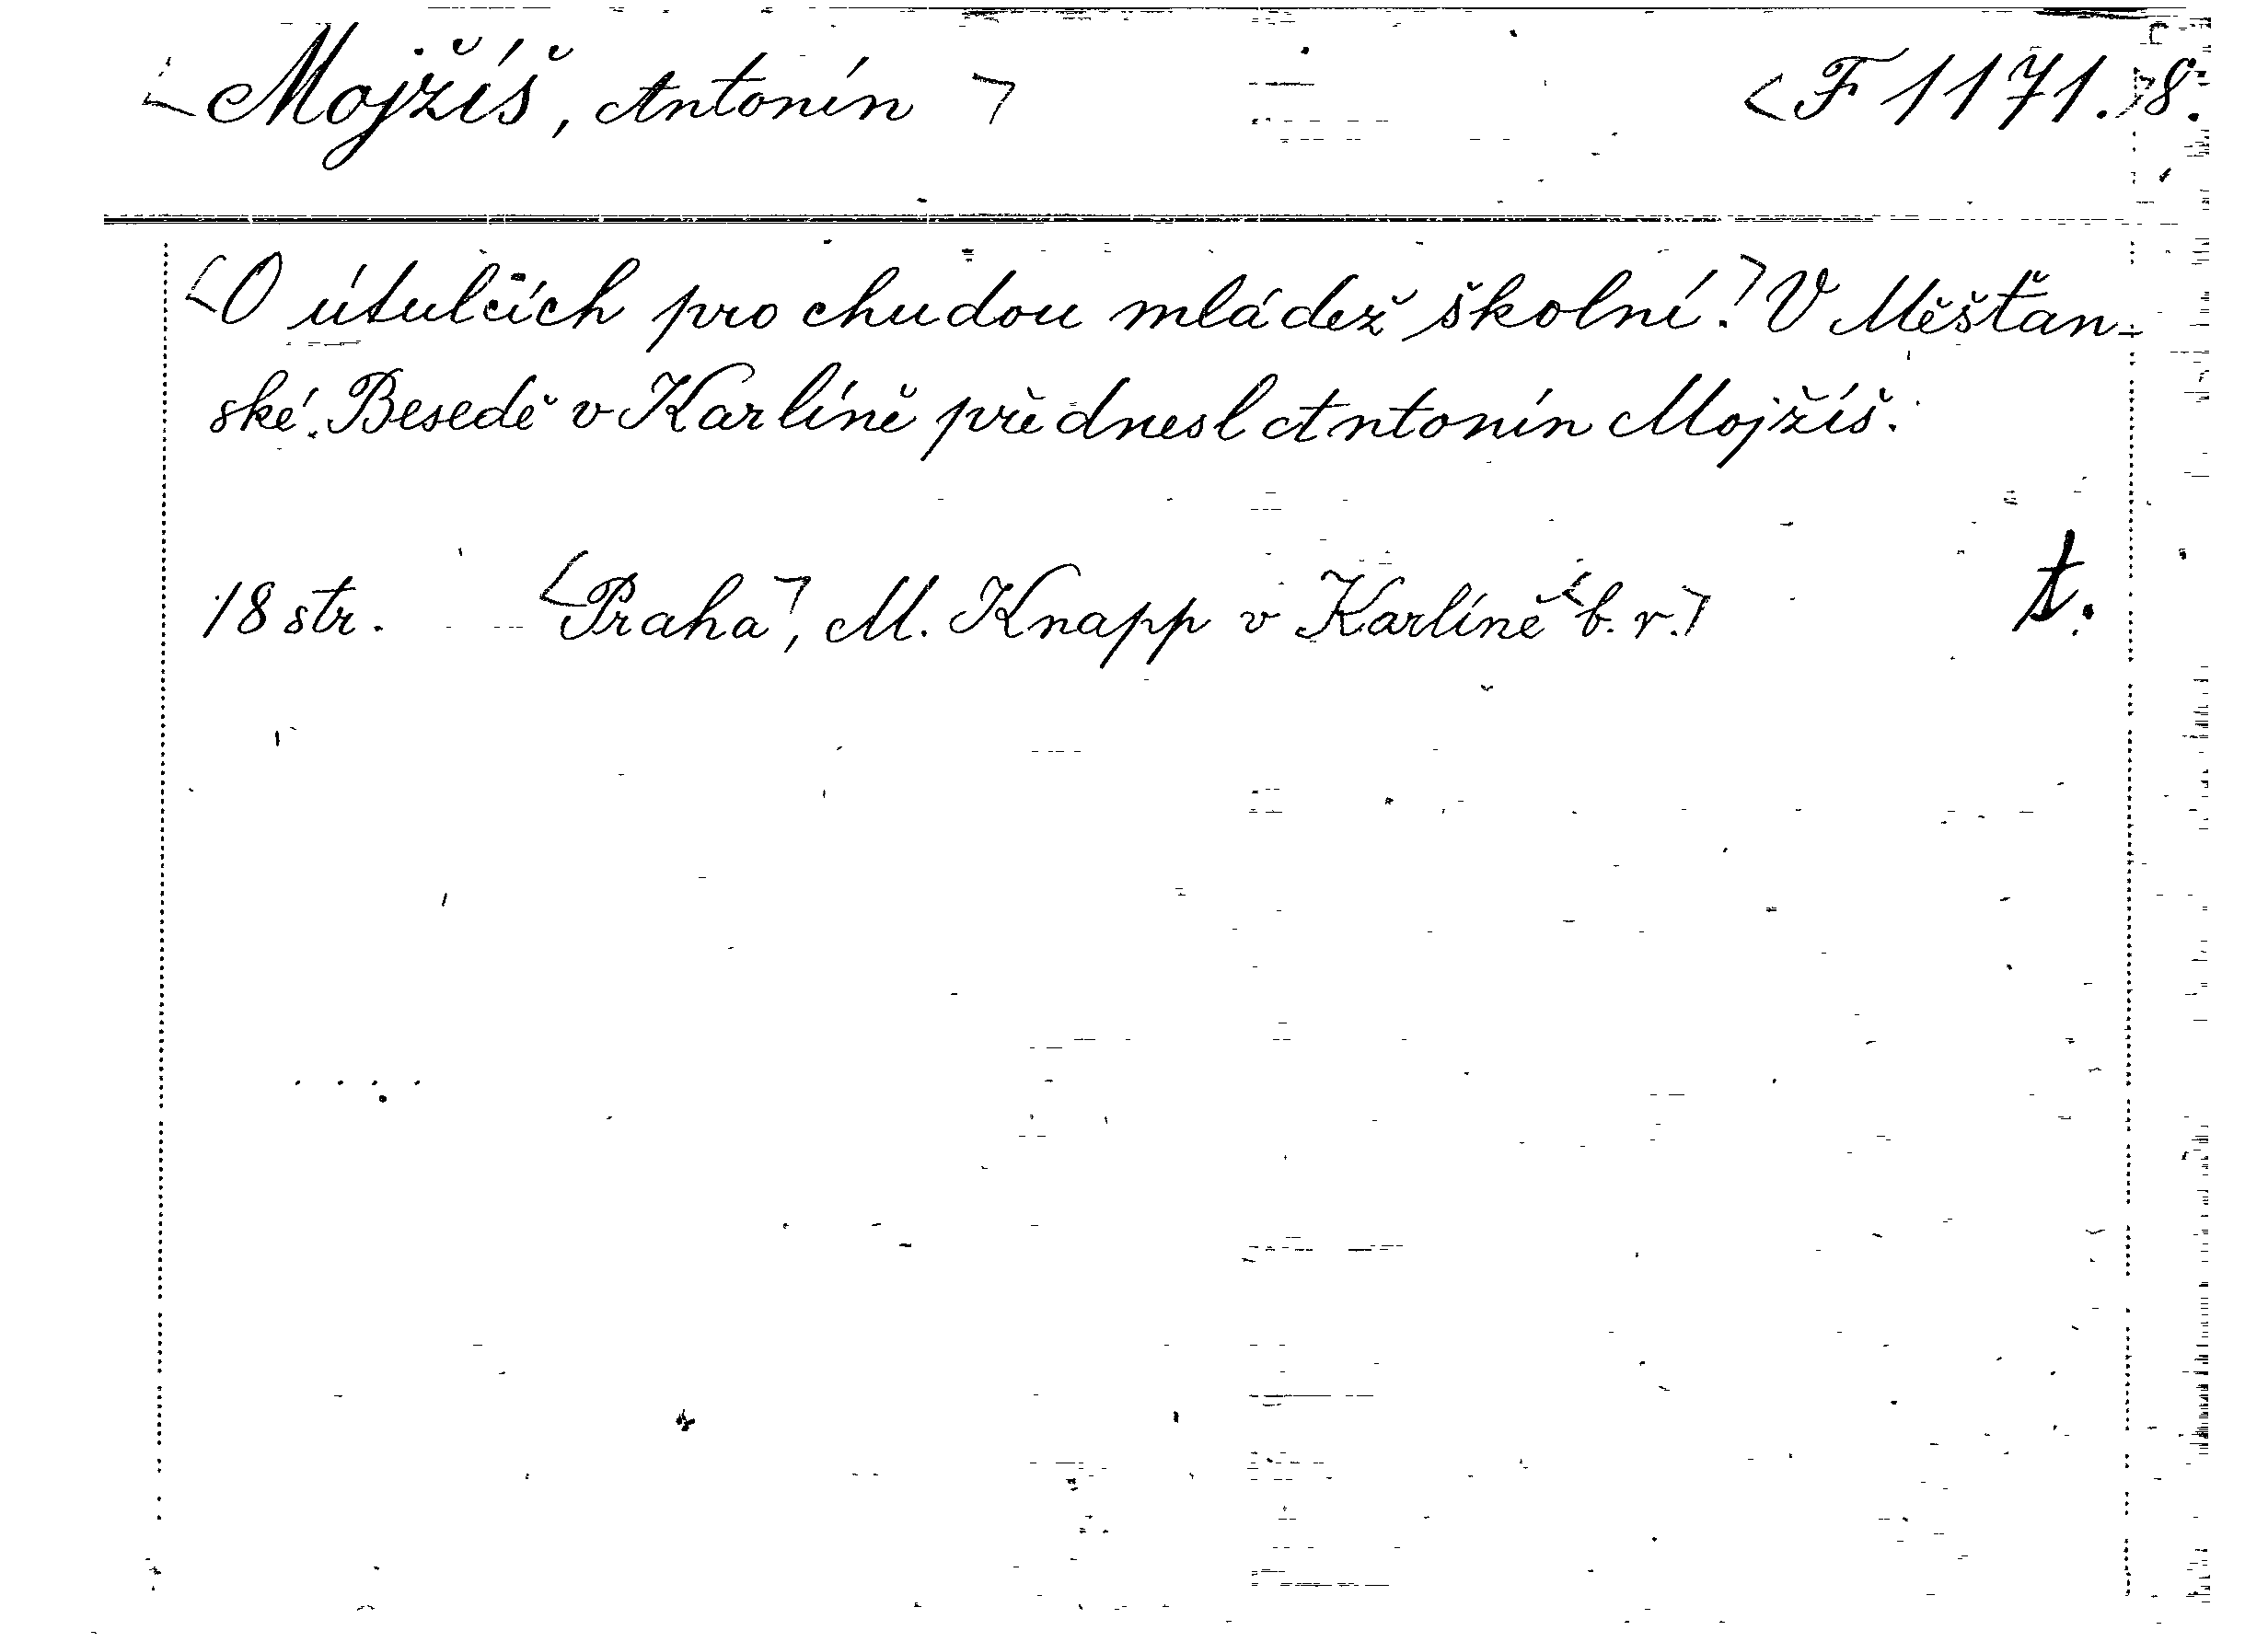 Mojžíš, Antonín F 1171. 8.
O útulcích pro chudou mládež školní. V Měšťan-
ské Besedě v Karlíně přednesl Antonín Mojžíš.
18 str. Praha, M. Knapp v Karlíně b. r. t.